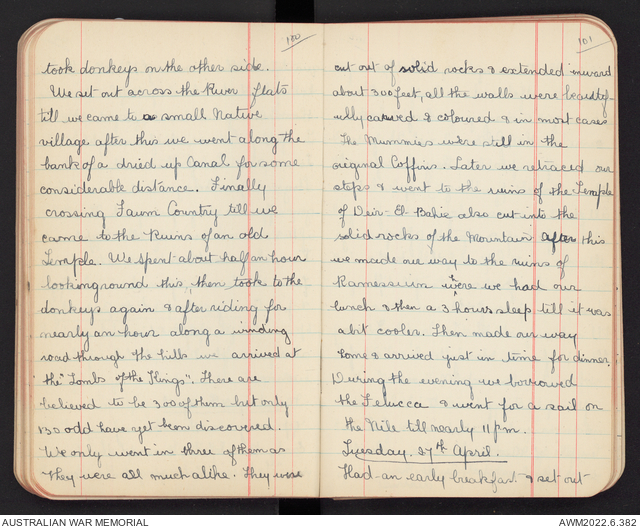 100
took donkeys on the other side.
We set out across the River flats
till we came to a small Native
village after this we went along the
bank of a dried up Canal for some
considerable distance. Finally
crossing Farm Country till we
came to the Ruins of an old
Temple. We spent about half an hour
looking round this, then took to the
donkeys again & after riding for
nearly an hour along a winding
road through the hills we arrived at
the "Tombs of the Kings". There are
believed to be 300 of them but only
130 odd have yet been discovered.
We only went in three of them as
they were all much alike. They were
101
cut out of solid rocks & extended inward
about 300 feet, all the walls were beautif-
ully carved & coloured & in most cases
The Mummies were still in the
original Coffins. Later we retraced our
steps & went to the ruins of the Temple
of Deir-El-Bahie also cut into the
solid rocks of the Mountain After this
we made our way to the ruins of
Ramesseum were we had our
lunch & then a 3 hours sleep till it was
a bit cooler. Then made our way
home & arrived just in time for dinner.
During the evening we borrowed
the Felucca & went for a sail on
the Nile till nearly 11 pm.
Tuesday. 27th April.
Had an early breakfast & set out
AUSTRALIAN WAR MEMORIAL
AWM2022.6.382